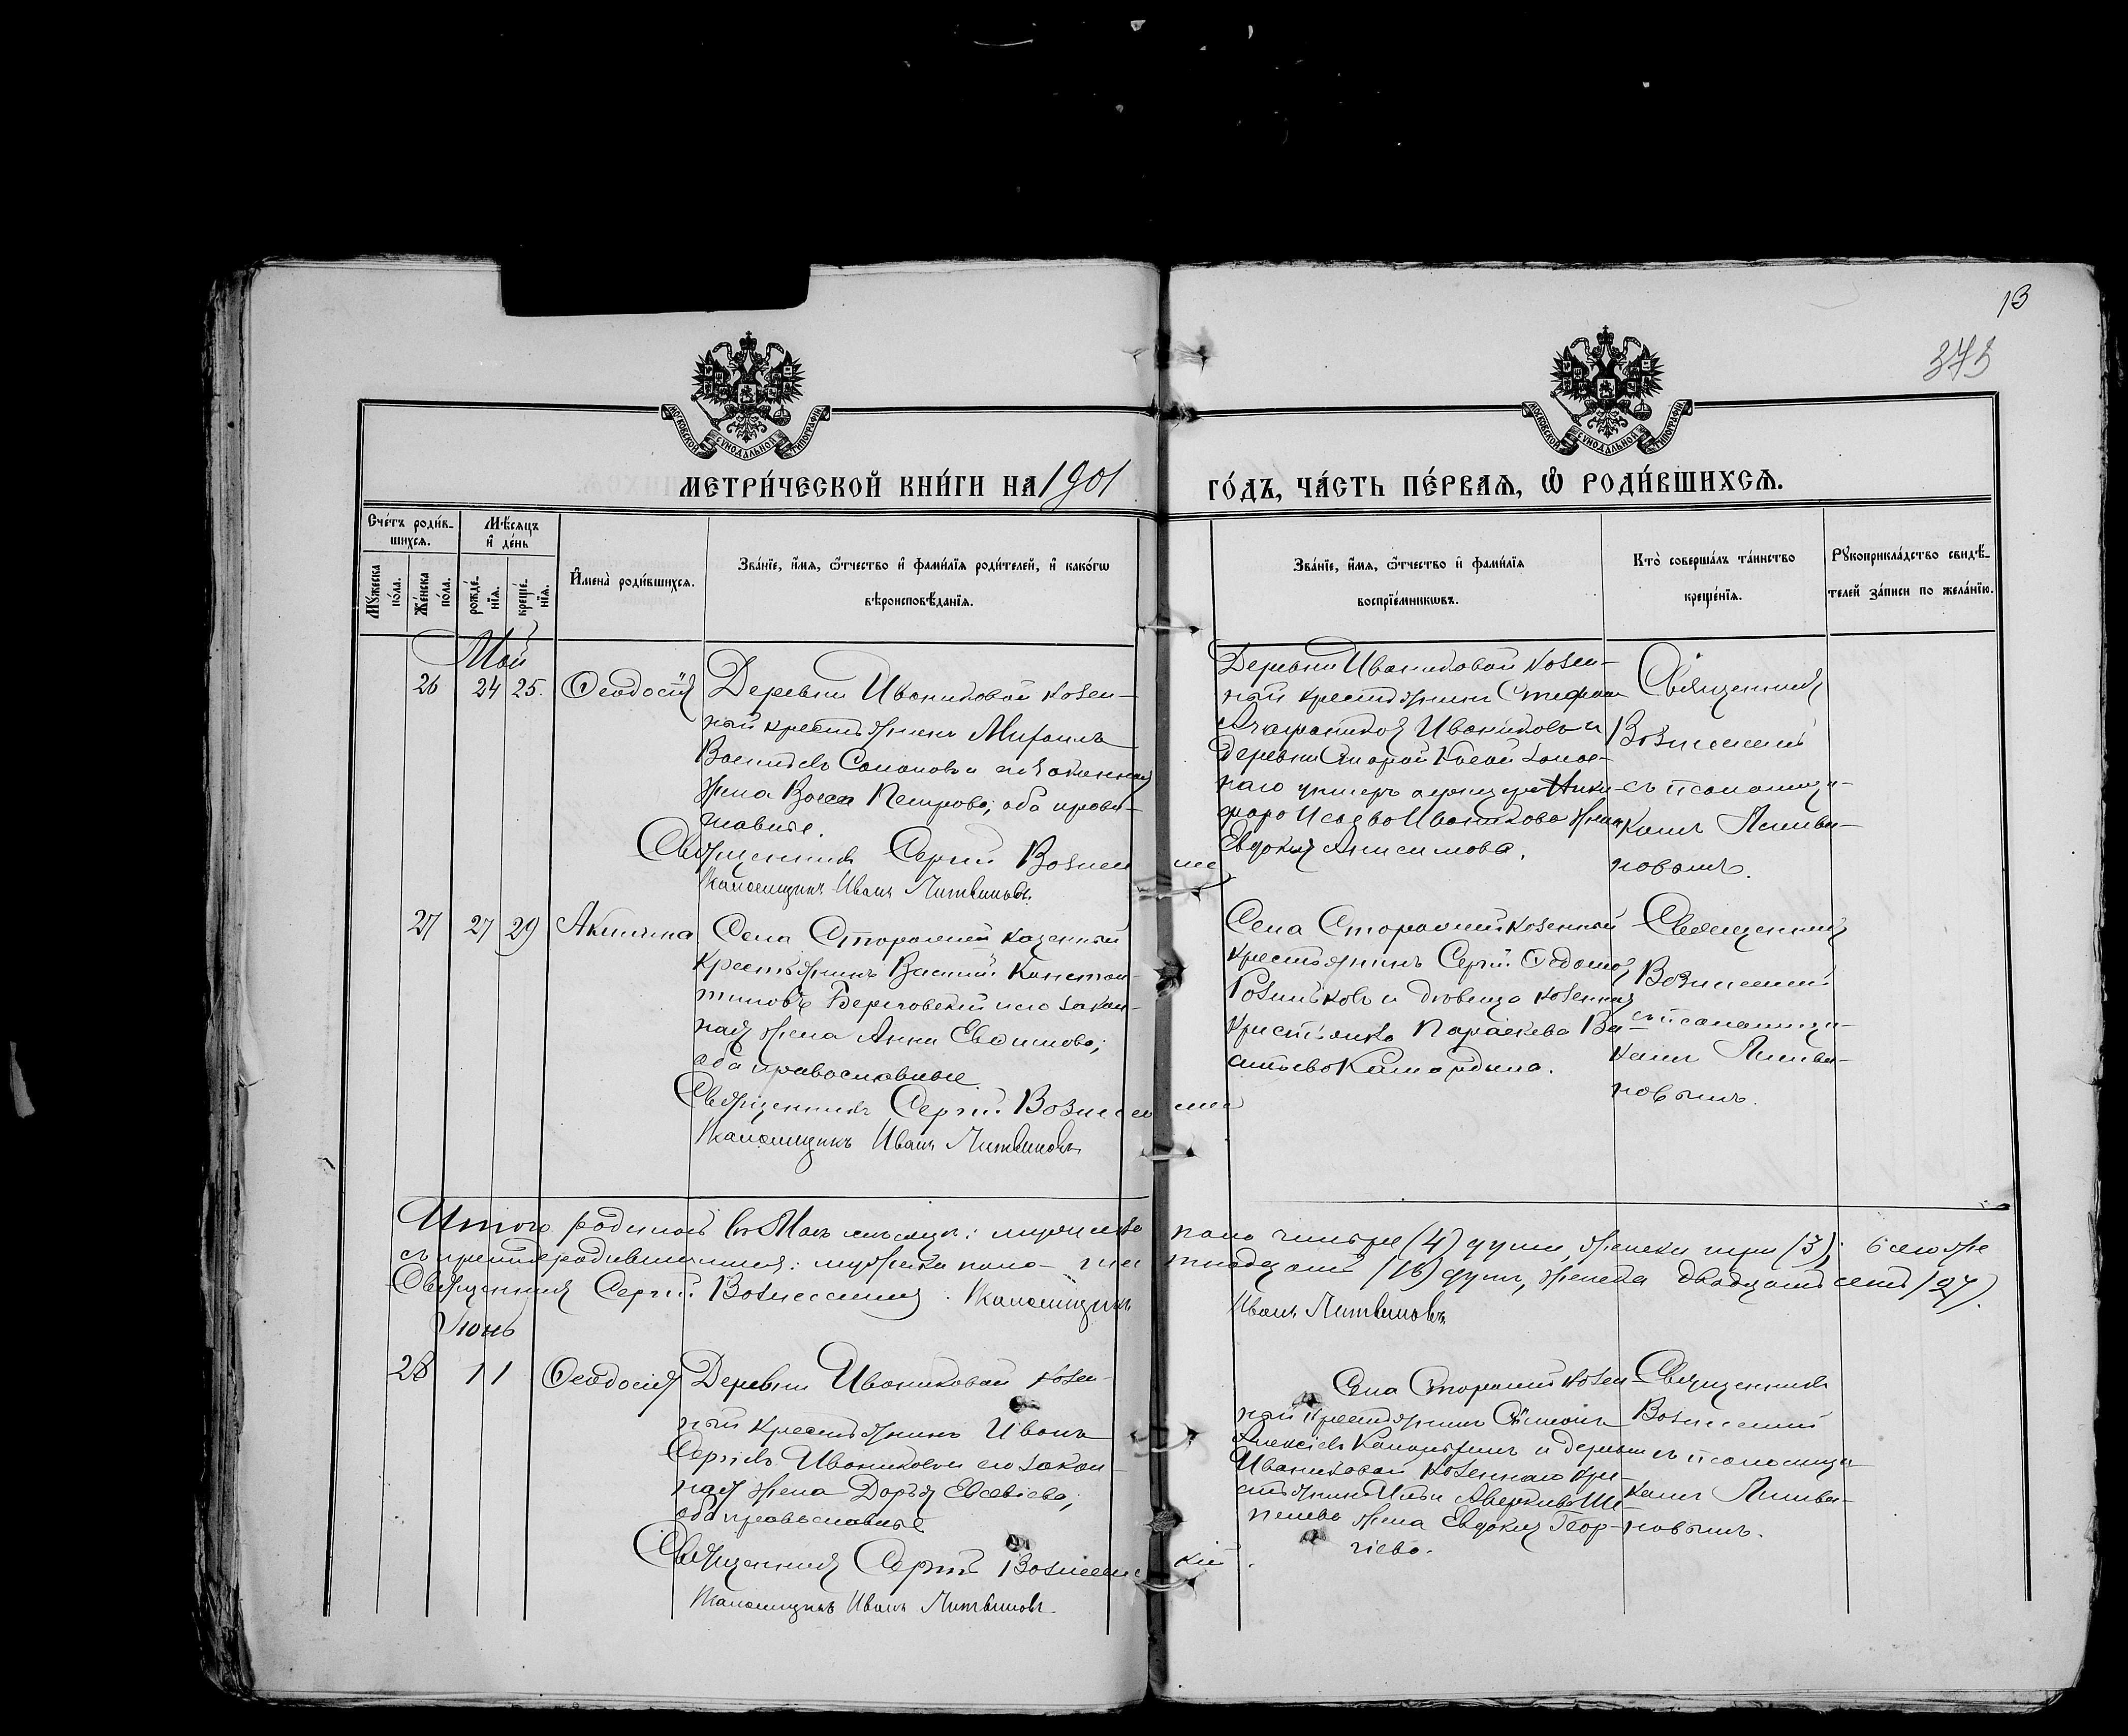 13
373
МОСКОВСКОЙ СѴНОДАЛЬНОЙ ТИПОГРАФІИ
МОСКОВСКОЙ СѴНОДАЛЬНОЙ ТИПОГРАФІИ
МЕТРИ́ЧЕСКОЙ КНИ́ГИ НА 1901
ГО́ДЪ, ЧА́СТЬ ПЕ́РВАЯ, Ѡ҆ РОДИ́ВШИХСѦ.
Сче́тъ роди́в-
шихся.
Му́жеска
по́ла.
Же́нска
по́ла.
Мѣ́сяцъ
и҆ де́нь
рожде́-
нїя.
креще́-
нїя.
И҆мена̀ роди́вшихся.
Зва́нїе, и҆́мя, ѻ҆́тчество и҆ фами́лїя роди́телей, и҆ како́гѡ
вѣроисповѣ́данїя.
Зва́нїе, и҆́мя, ѻ҆́тчество и҆ фами́лїя
воспрїе́мникѡвъ.
Кто̀ соверша́лъ та́инство
креще́нїя.
Рꙋкоприкла́дство свидѣ́-
телей за́писи по жела́нїю.
Май
26
24
25.
Ѳеодосія
Деревни Иваниковой казен-
ный крестьянинъ Михаилъ
Васильевъ и законная
жена Васса Петрова; оба право-
славные.
Священникъ Сергій Вознесенс
Псаломщикъ Иванъ Литвиновъ.
Деревни Иваниковой казен-
ный крестьянинъ Стефанъ
Иваниковъ и
деревни
унтеръ офицера Ники-
фора Иваникова жена
Евдокія Анисимова.
Священникъ
Вознесенскій
съ псаломщи-
комъ Литви-
новымъ.
27
27
29
Акилина
Села Сторожей казенный
крестьянинъ Василій Констан-
тиновъ Береговскій и его закон-
ная жена Анна Евфимова;
оба православные.
Священникъ Сергій Вознесенс
Псаломщикъ Иванъ Литвиновъ
Села Сторожей казенный
крестьянинъ Сергій Ѳедотов
и дѣвица казенная
крестьянка Параскева Ва-
сильева
Священникъ
Вознесенскій
съ псаломщи-
комъ Литви-
новымъ.
Итого родилось въ Маѣ мѣсяцѣ: мужеска пола четыре (4) души, женска три (3); всего же
съ прежде родившимися: мужеска пола шестнадцать (16) душъ, женска двадцать семь (27).
Священникъ Сергій Вознесенскій. Псаломщикъ Иванъ Литвиновъ.
Іюнь
28
1
1
Ѳеодосія
Деревни Иваниковой казен-
ный крестьянинъ Иванъ
Сергіевъ Иваниковъ и его закон-
ная жена Дарья Евсевіева;
оба православные
Священникъ Сергій Вознесенскій.
Псаломщикъ Иванъ Литвиновъ.
Села Сторожей казен-
ный крестьянинъ Симеонъ
Алексіевъ и деревни
Иваниковой казеннаго кре-
стьянина Ильи Аверкіева Ше-
пелева жена Евдокія Геор-
гіева.
Священникъ
Вознесенскій
съ псаломщи-
комъ Литви-
новымъ.